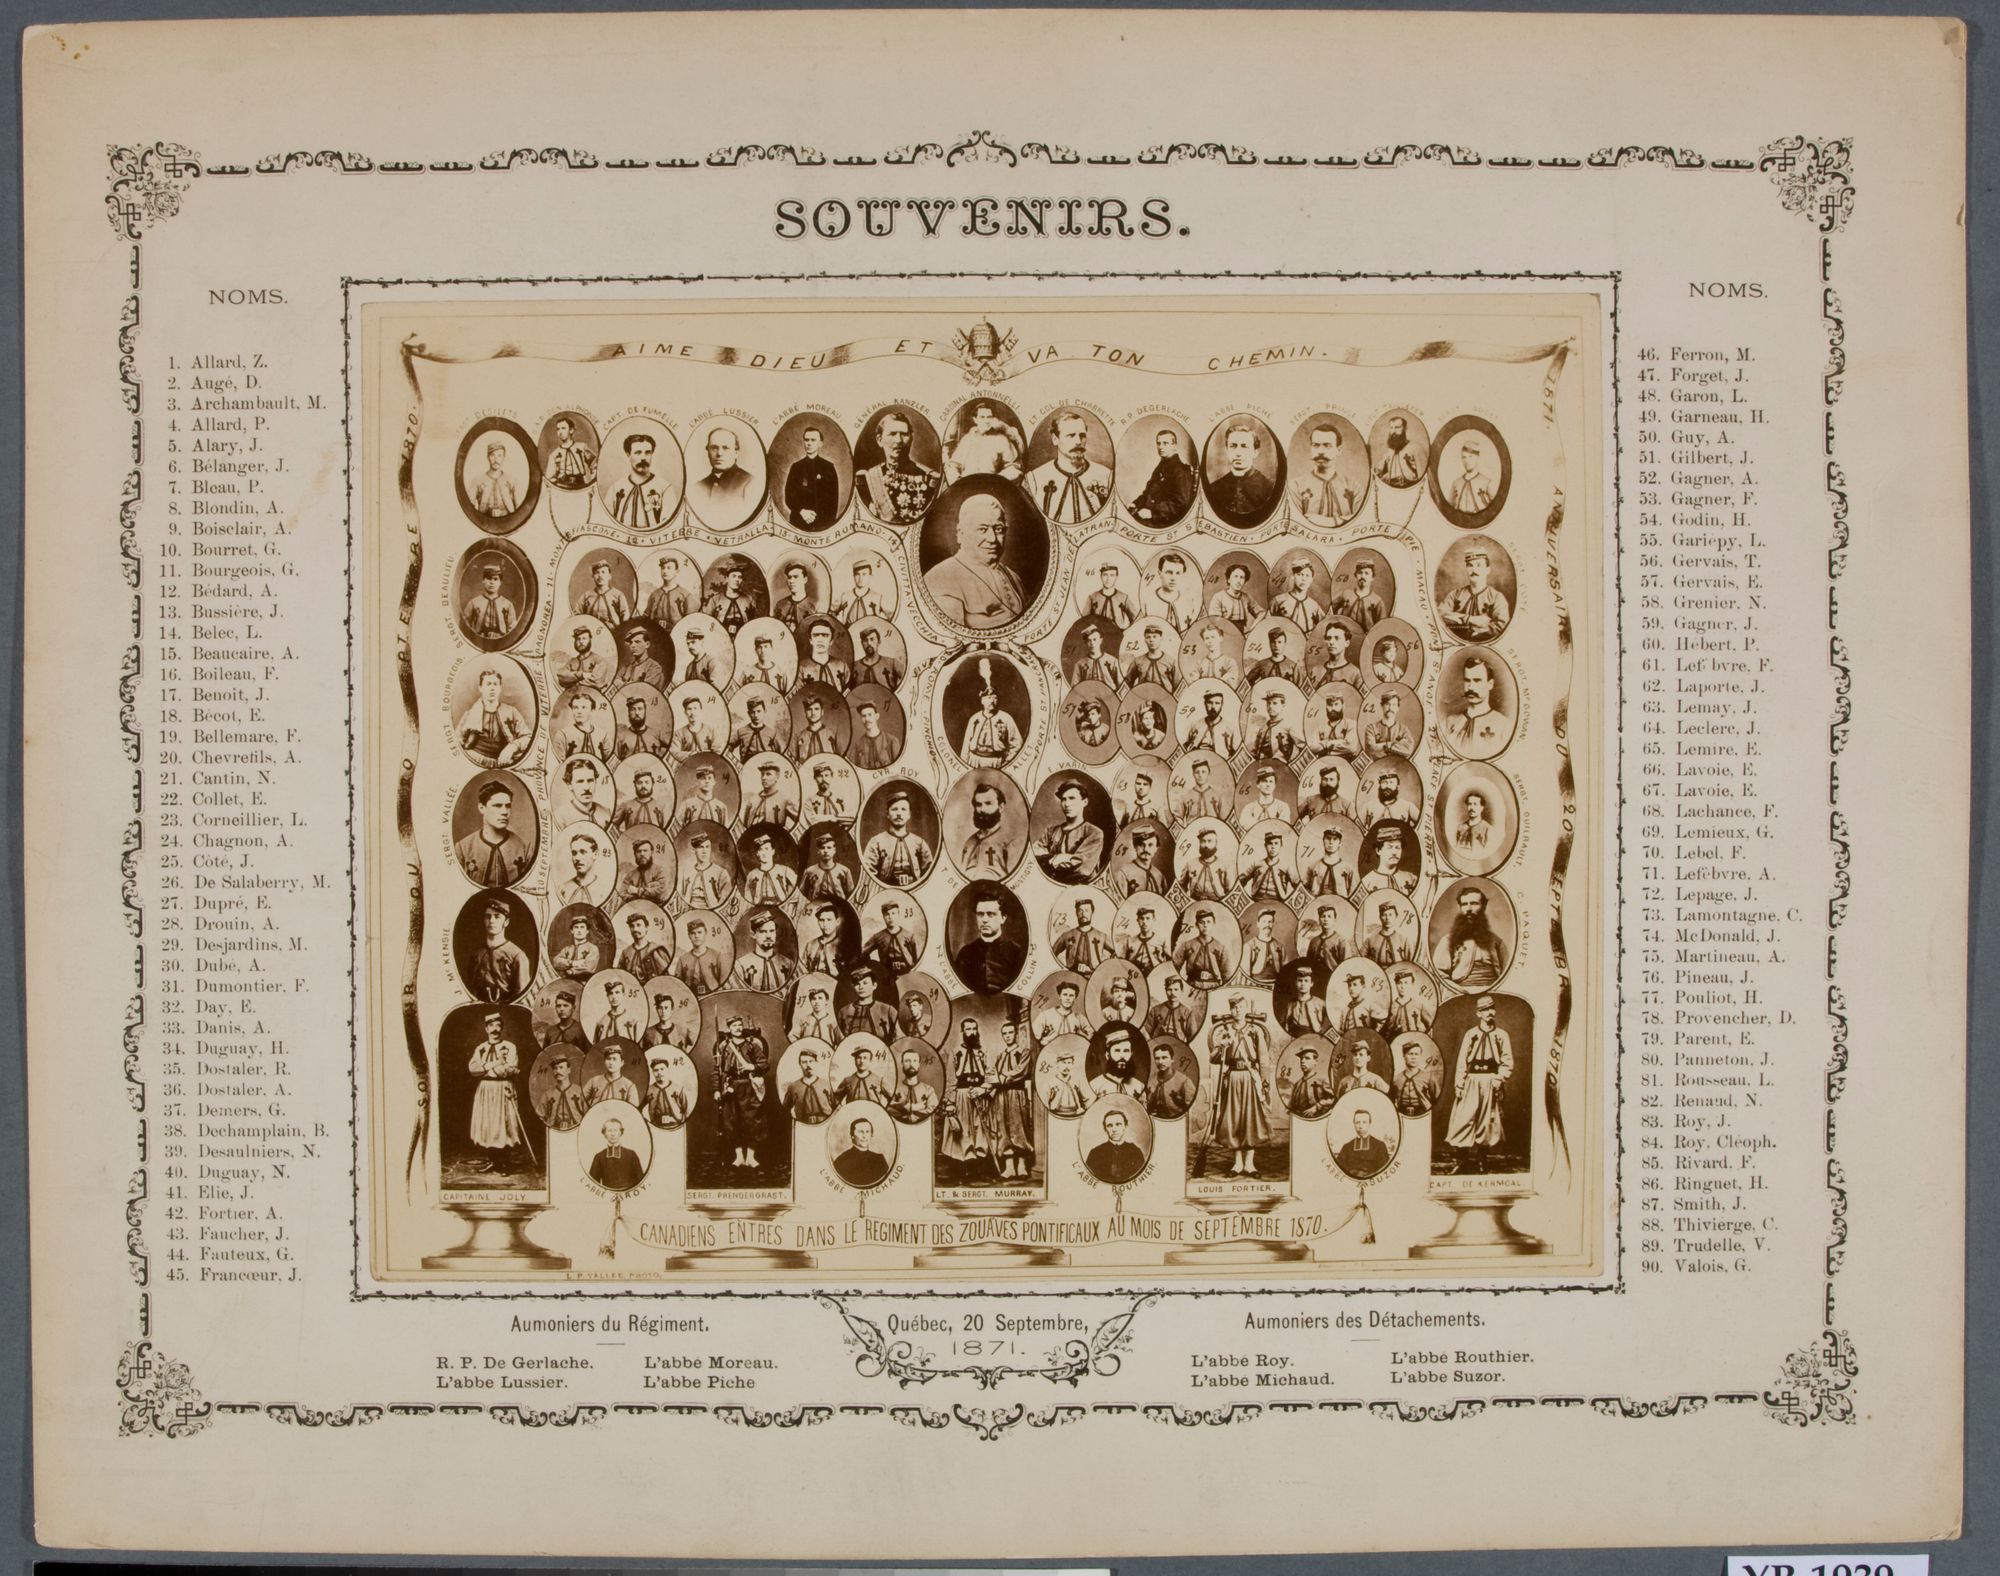 SOUVENIRS.
NOMS.
1. Allard, Z.
2. Augé, D.
3. Archambault, M.
4. Allard, P.
5. Alary, J.
6. Bélanger, J.
7. Bleau, P.
8. Blondin, A.
9. Boisclair, A.
10. Bourret, G.
11. Bourgeois, G.
12. Bédard, A.
13. Bussière, J.
14. Belec, L.
15. Beaucaire, A.
16. Boileau, F.
17. Benoit, J.
18. Bécot, E.
19. Bellemare, F.
20. Chevrefils, A.
21. Cantin, N.
22. Collet, E.
23. Corneillier, L.
24. Chagnon, A.
25. Côté, J.
26. De Salaberry, M.
27. Dupré, E.
28. Drouin, A.
29. Desjardins, M.
30. Dubé, A.
31. Dumontier, F.
32. Day, E.
33. Danis, A.
34. Duguay, H.
35. Dostaler, R.
36. Dostaler, A.
37. Demers, G.
38. Dechamplain, B.
39. Desaulniers, N.
40. Duguay, N.
41. Elie, J.
42. Fortier, A.
43. Faucher, J.
44. Fauteux, G.
45. Francœur, J.
AIME DIEU ET VA TON CHEMIN.
1871. ANNIVERSAIRE DU 20 SEPTEMBRE 1870
CAPT. DE FUMELLE
L'ABBÉ LUSSIER
L'ABBÉ MOREAU
GÉNÉRAL KANZLER
CARDINAL ANTONNELLE
LT. COL. DE CHARRETTE
R.P. DEGERLACHE
L'ABBÉ PICHÉ
SERGT. PRINCE
VITERBE • VETRALLA • 13 • MONTE ROMANO • CIVITTA VECCHIA
PORTE ST JEAN DE LATRAN • PORTE ST SEBASTIEN • PORTE SALARA • PORTE PIE •
SERGT. BEAULIEU
SERGT. BOURGEOIS
SERGT. VALLÉE
J. McKENSIE
SERGT. McGOWAN
SERGT. GUILBAULT
C. PAQUET
COLONEL ALLET
CYR. ROY
L. VARIN
L'ABBÉ COLLIN
CAPITAINE JOLY
L'ABBÉ ROY
SERGT. PRENDERGRAST.
L'ABBÉ MICHAUD
LT. & SERGT. MURRAY.
L'ABBÉ ROUTHIER
LOUIS FORTIER.
L'ABBÉ SUZOR
CAPT. DE KERMOAL
CANADIENS ENTRES DANS LE REGIMENT DES ZOUAVES PONTIFICAUX AU MOIS DE SEPTEMBRE 1870.
L. P. VALLÉE, PHOTO.
NOMS.
46. Ferron, M.
47. Forget, J.
48. Garon, L.
49. Garneau, H.
50. Guy, A.
51. Gilbert, J.
52. Gagner, A.
53. Gagner, F.
54. Godin, H.
55. Gariépy, L.
56. Gervais, T.
57. Gervais, E.
58. Grenier, N.
59. Gagner, J.
60. Hébert, P.
61. Lefebvre, F.
62. Laporte, J.
63. Lemay, J.
64. Leclerc, J.
65. Lemire, E.
66. Lavoie, E.
67. Lavoie, E.
68. Lachance, F.
69. Lemieux, G.
70. Lebel, F.
71. Lefêbvre, A.
72. Lepage, J.
73. Lamontagne, C.
74. McDonald, J.
75. Martineau, A.
76. Pineau, J.
77. Pouliot, H.
78. Provencher, D.
79. Parent, E.
80. Panneton, J.
81. Rousseau, L.
82. Renaud, N.
83. Roy, J.
84. Roy, Cléoph.
85. Rivard, F.
86. Ringuet, H.
87. Smith, J.
88. Thivierge, C.
89. Trudelle, V.
90. Valois, G.
Aumoniers du Régiment.
R. P. De Gerlache. L'abbé Moreau.
L'abbe Lussier. L'abbe Piche
Québec, 20 Septembre,
1871.
Aumoniers des Détachements.
L'abbé Roy. L'abbé Routhier.
L'abbé Michaud. L'abbé Suzor.